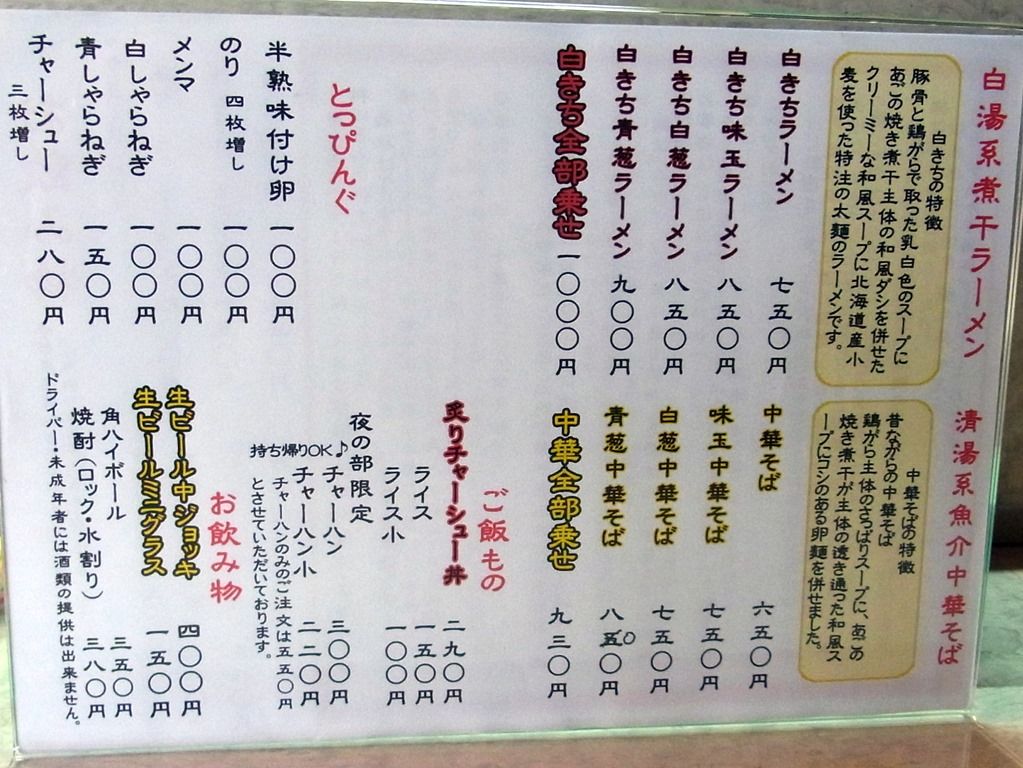 白湯系煮干ラーメン
白きちの特徴
豚骨と鶏がらで取った乳白色のスープに
あごの焼き煮干主体の和風ダシを併せた
クリーミーな和風スープに北海道産小
麦を使った特注の太麺のラーメンです。
白きちラーメン 七五〇円
白きち味玉ラーメン 八五〇円
白きち白葱ラーメン 八五〇円
白きち青葱ラーメン 九〇〇円
白きち全部乗せ 一〇〇〇円
清湯系魚介中華そば
中華そばの特徴
昔ながらの中華そば
鶏がら主体のさっぱりスープに、あごの
焼き煮干が主体の透き通った和風ス
ープにコシのある卵麺を併せました。
中華そば 六五〇円
味玉中華そば 七五〇円
白葱中華そば 七五〇円
青葱中華そば 八五〇円
中華全部乗せ 九三〇円
とっぴんぐ
半熟味付け卵 一〇〇円
のり 四枚増し 一〇〇円
メンマ 一〇〇円
白しゃらねぎ 一〇〇円
青しゃらねぎ 一五〇円
チャーシュー 三枚増し 二八〇円
ご飯もの
炙りチャーシュー丼 二九〇円
ライス 一五〇円
ライス小 一〇〇円
夜の部限定
チャーハン 三〇〇円
チャーハン小 二二〇円
持ち帰りOK♪
チャーハンのみのご注文は五五〇円
とさせていただいております。
お飲み物
生ビール中ジョッキ 四〇〇円
生ビールミニグラス 一五〇円
角ハイボール 三五〇円
焼酎(ロック・水割り) 三八〇円
ドライバー・未成年者には酒類の提供は出来ません。